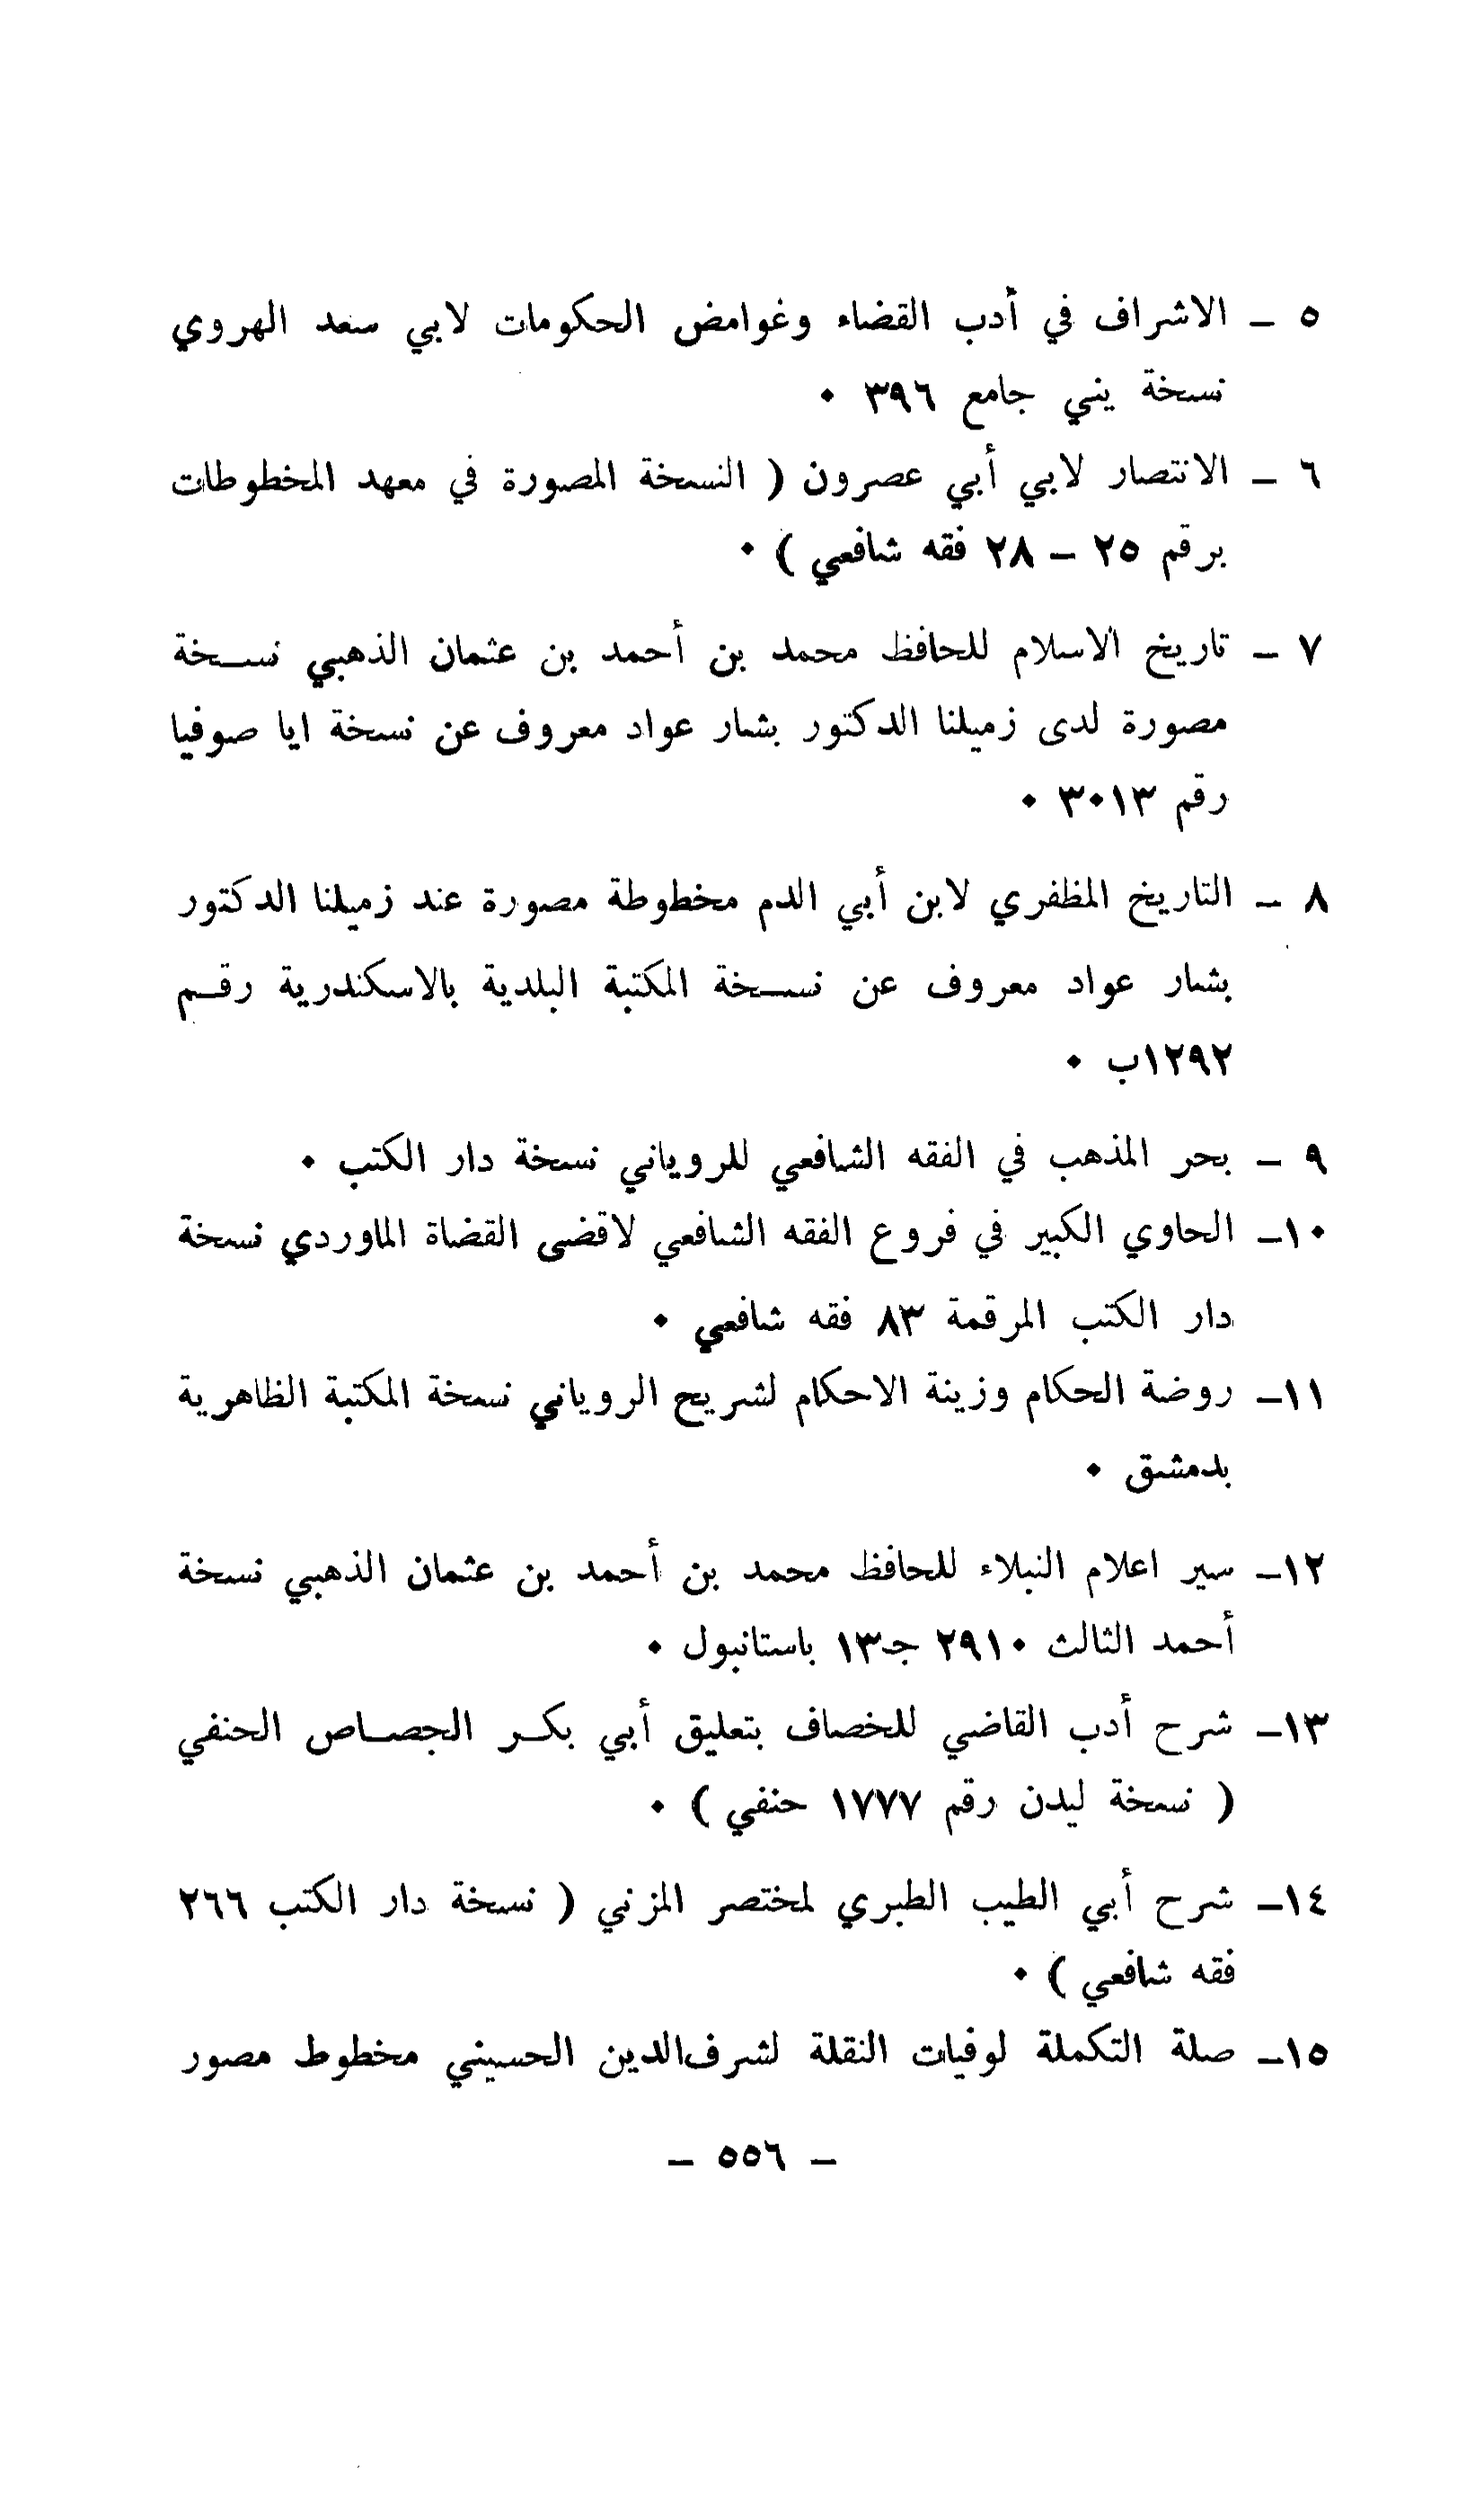 ٥ - الاشراف في أدب القضاء وغوامض الحكومات لابي سعد الهروي
نسخة يني جامع ٣٩٦ ٠
٦ - الانتصار لابي أبي عصرون ( النسخة المصورة في معهد المخطوطات
برقم ٢٥ - ٢٨ فقه شافعي ) ٠
٧ - تاريخ الاسلام للحافظ محمد بن أحمد بن عثمان الذهبي نسـخة
مصورة لدى زميلنا الدكتور بشار عواد معروف عن نسخة ايا صوفيا
رقم ٣٠١٣ ٠
٨ - التاريخ المظفري لابن أبي الدم مخطوطة مصورة عند زميلنا الدكتور
بشار عواد معروف عن نسـخة المكتبة البلدية بالاسكندرية رقـم
١٢٩٢ب ٠
٩ - بحر المذهب في الفقه الشافعي للروياني نسخة دار الكتب ٠
١٠- الحاوي الكبير في فروع الفقه الشافعي لاقضى القضاة الماوردي نسخة
دار الكتب المرقمة ٨٣ فقه شافعي ٠
١١- روضة الحكام وزينة الاحكام لشريح الروياني نسخة المكتبة الظاهرية
بدمشق ٠
١٢- سير اعلام النبلاء للحافظ محمد بن أحمد بن عثمان الذهبي نسخة
أحمد الثالث ٢٩١٠ جـ١٣ باستانبول ٠
١٣- شرح أدب القاضي للخصاف بتعليق أبي بكـر الجصـاص الحنفي
( نسخة ليدن رقم ١٧٧٧ حنفي ) ٠
١٤- شرح أبي الطيب الطبري لمختصر المزني ( نسخة دار الكتب ٢٦٦
فقه شافعي ) ٠
١٥- صلة التكملة لوفيات النقلة لشرف‌الدين الحسيني مخطوط مصور
- ٥٥٦ -